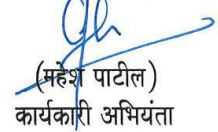 (महेश पाटील)
कार्यकारी अभियंता